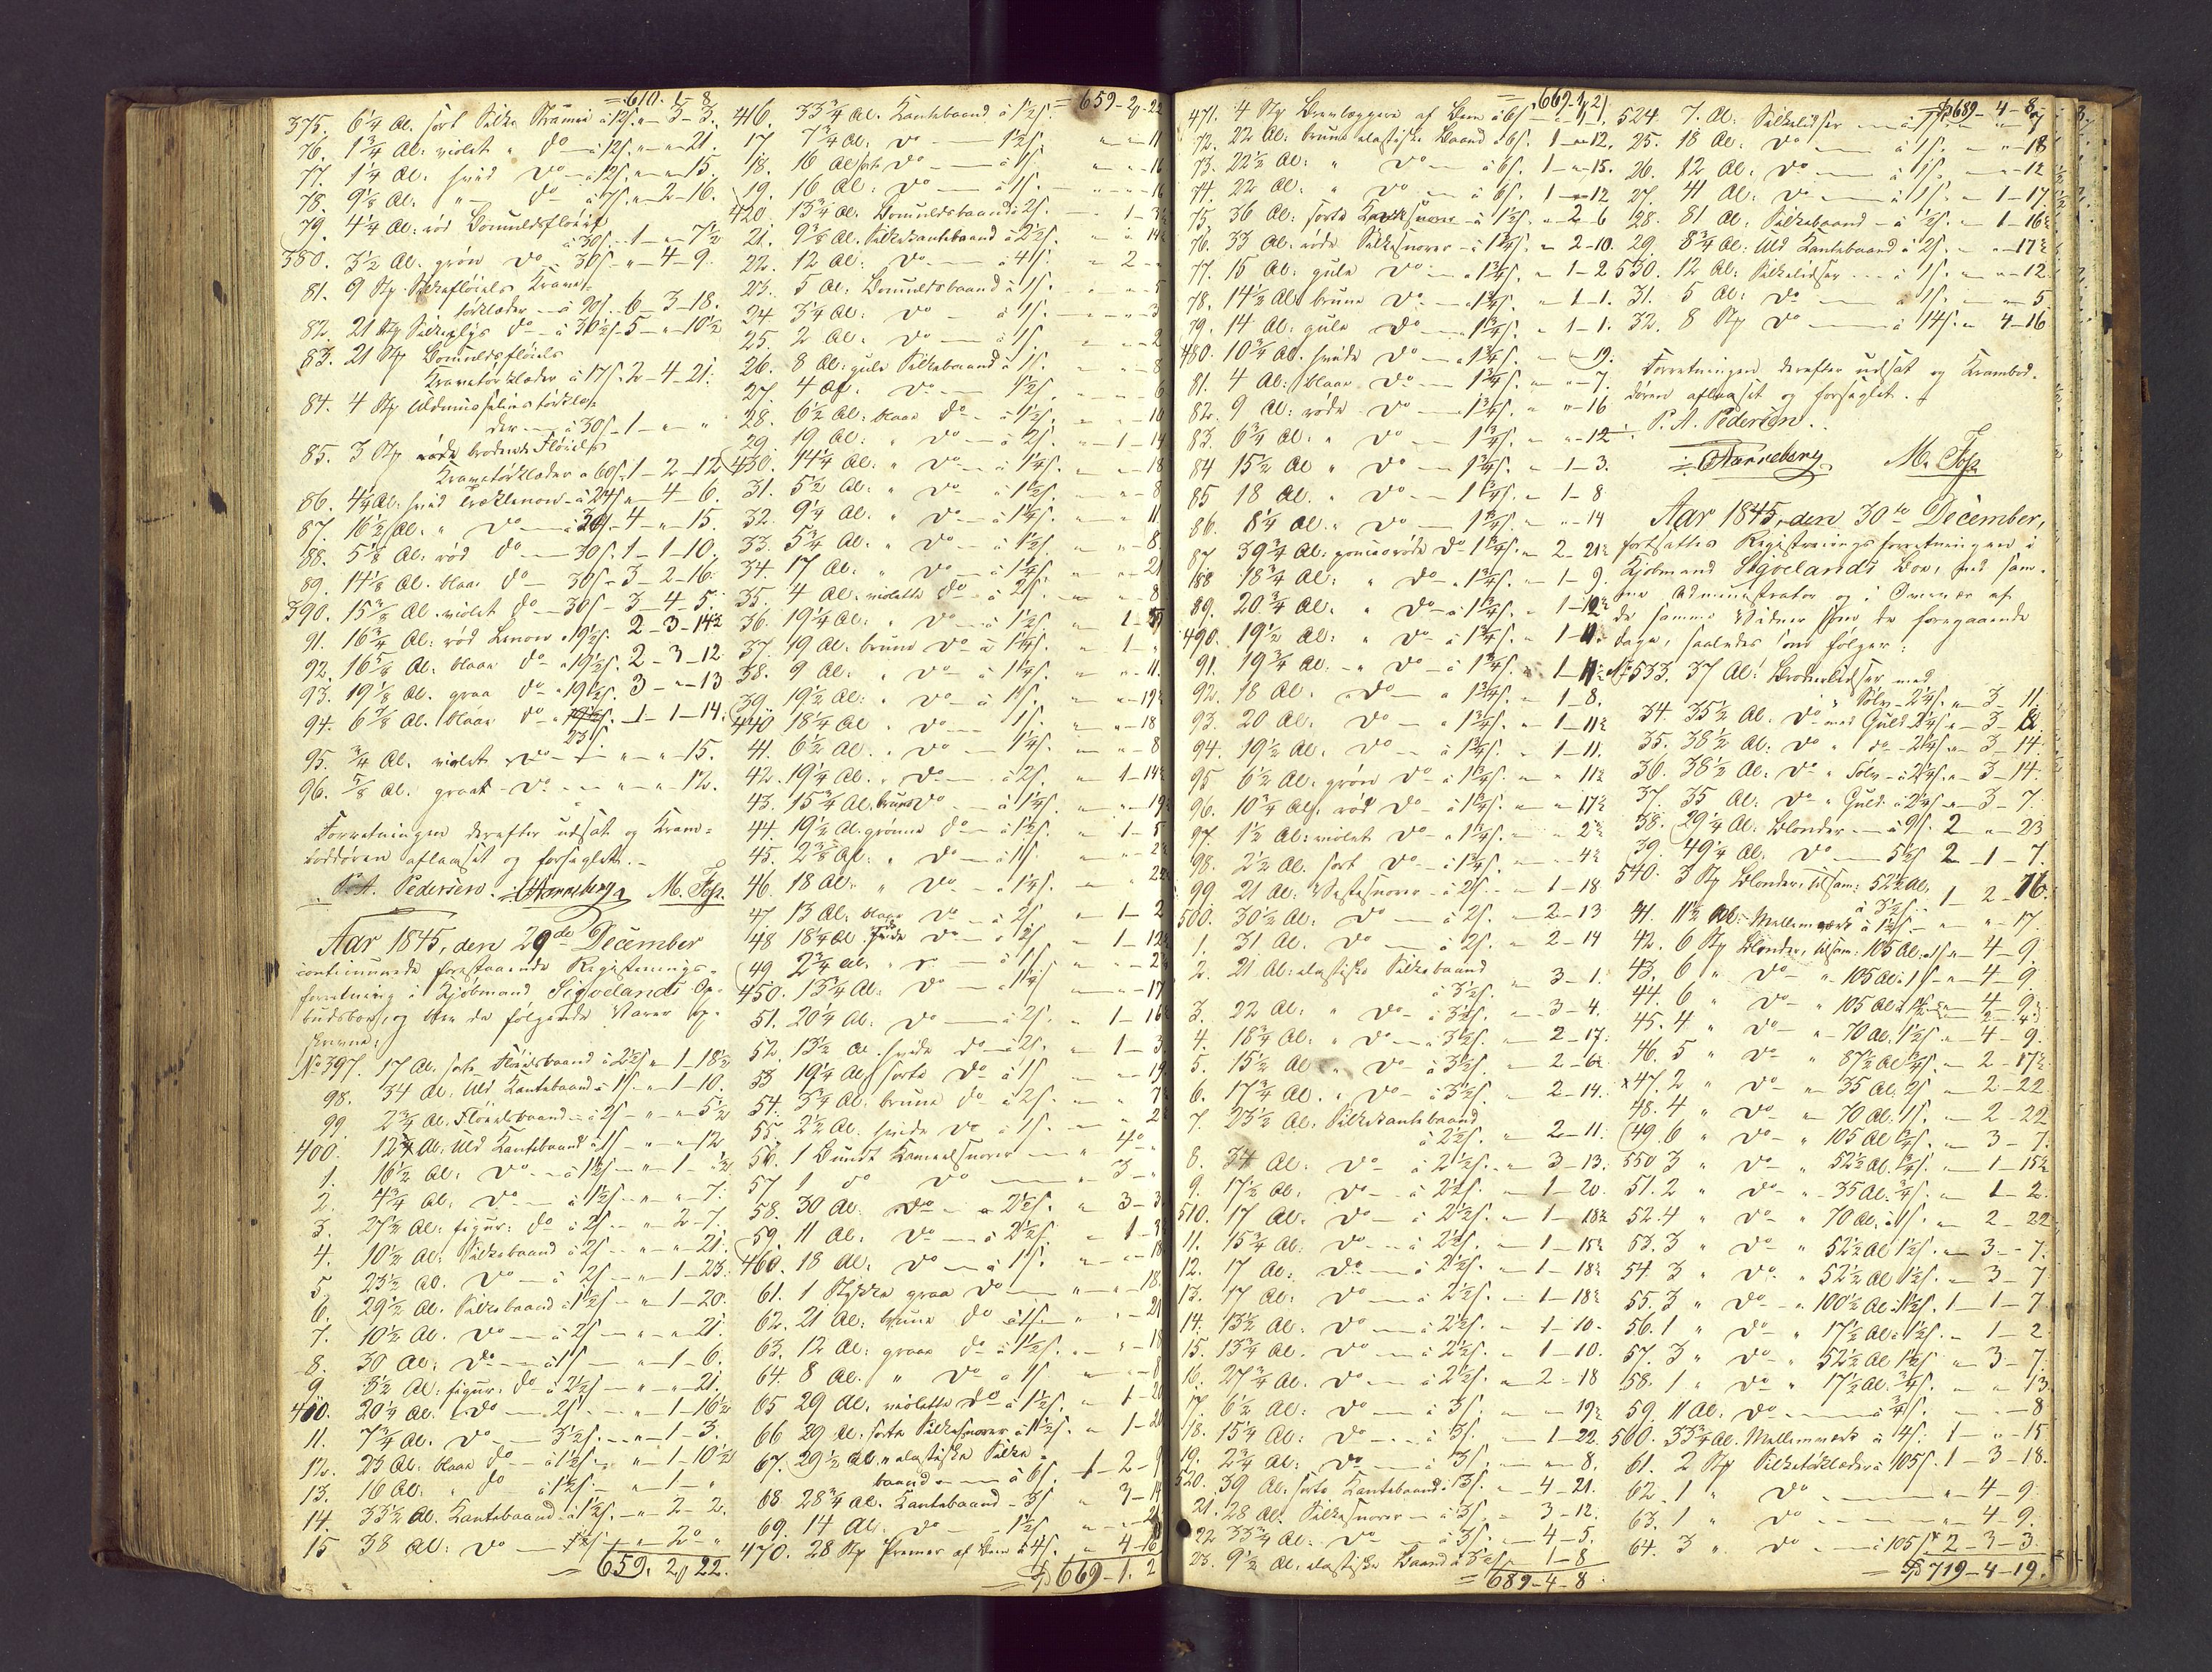 = 610. 1-8
375. 6 1/4 Al. sort Silke Kramei à 12 s. „ - 3 - 3.
76. 1 3/4 Al: violet „ do - à 12 s. „ - „ - 21.
77. 1 1/4 Al. hvid Do - à 12 s. „ - „ - 15.
78. 9 1/8 Al. „ - do - à 7 s. „ - 2 - 16.
79. 4 1/4 Al: rød Bomuldsfløiel
à 30 s. - 1 - „ - 7 1/2
380. 3 1/2 Al. grøn do - 30 s - „ - 4 - 9.
81. 9 Stp Silkefløiels Krave-
tørklæder - à 2 s. - 6 - 3 - 18.
82. 21 Stp Silkeplys do - à 30 1/2 s - 5 - „ - 10 1/2
83. 21 Stp Bomuldsfløiels
Kravetørklæder à 17 s. 2 - 4 - 21.
84. 4 Stp Uldmusselinstørklæ-
der - à 30 s - 1 - „ - „
85. 3 Stp røde broderede Fløiels
Kravetørklæder à 60 s. 1 - 2 - 12
86. 4 1/4 Al: hvid - à 24 s „ - 4 - 6.
87. 16 1/2 Al. „ Do - à 30 s - 4 - „ - 15.
88. 5 5/8 Al: rød do - 30 s. 1 - 1 - 10.
89. 14 1/8 Al. blaa do - 30 s - 3 - 2 - 16.
390. 15 3/8 Al. violet do - 30 s - 3 - 4 - 5.
91. 16 3/4 Al: rød Lenon à 19 1/2 s. 2 - 3 - 14 1/2
92. 16 5/8 Al. blaa do - à 19 1/2 s. 2 - 3 - 12
93. 19 1/8 Al. graa do - à 19 1/2 s. 3 - „ - 13
94. 6 7/8 Al. blaa do - 1 - 1 - 14.
23 s.
95. 3/4 Al. violet do - „ - „ - 15.
96. 5/8 Al. graat - do - „ - „ - 12.
Forretningen derefter udsat og Kram-
boddøren aflaaset og forseglet. -
P. A. Pedersen. M. Top.
Aar 1845, den 29de December
continuerede forestaaende Registrerings-
forretning i Kjøbmand Sigvelands Op-
budsboe, og blev da følgende Varer op-
skrevne:
No 397. 17 Al. sort Fløielsbaand à 2 1/2 s „ - 1 - 18 1/2
98. 34 Al. Uld Kantebaand à 1 s - „ - 1 - 10.
99 2 3/4 Al. Fløielsbaand - à 2 s - „ - „ - 5 1/2
400. 12 1/4 Al. Uld Kantebaand à 1 s - „ - „ - 12
1. 16 1/2 Al: Do - à 1 1/2 s - „ - 1 - 1/2
2. 4 3/4 Al: Do - à 1 1/2 s - „ - „ - 7.
3. 27 1/2 Al: figur: do à 2 s - „ - 2 - 7.
4. 10 1/2 Al. Silkebaand à 2 s - „ - „ - 21.
5. 23 1/2 Al. Do - à 2 s - „ - 1 - 23.
6. 29 1/2 Al. Silkebaand à 1 1/2 s - „ - 1 - 20.
7. 10 1/2 Al. Do - à 2 s - „ - „ - 21.
8. 30 Al: Do - à 1 s - „ - 1 - 6.
9 8 1/2 Al: figur. do - à 2 1/2 s - „ - „ - 21.
410. 20 1/4 Al. do - 2 s. - „ - 1 - 16 1/2
11. 7 3/4 Al. Do - 3 1/2 s. - „ - 1 - 3.
12. 23 Al. blaa do - à 1 1/2 s - „ - 1 - 10 1/2
13. 16 Al. „ do à 1 1/2 s - „ - 1 - „
14. 33 1/2 Al. Kantebaand à 1 1/2 s. - „ - 2 - 2.
15 38 Al: Do - 1 1/4 s - „ - 2 - „
= 659. 2, 22.
= 659 - 2 - 22
416. 33 3/4 Al. Kantebaand à 1 1/2 s.
17 7 3/4 Al: Do - 1 1/2 s. „ - „ - 11
18. 16 Al sort Do - à 1 s. „ - „ - 16
19. 16 Al: Do - à 1 s. - „ - „ - 16
420. 13 3/4 Al. Bomuldsbaand à 2 s. - 1 - 3 1/2
21. 9 5/8 Al. Silkekantebaand à 2 1/2 s. „ - „ 14 1/2
22. 12 Al: Do - à 4 s. „ 2 - „
23. 5 Al. Bomuldsbaand à 1 s. - „ - 5
24 3 1/4 Al: Do - à 1 s. - „ - „ - 3
25. 2 Al. Do - à 1 s. „ - 2
26. 8 Al: gule Silkebaand à 1 s. „ - „ - 8
27. 4 Al. Do - 1 1/2 s. „ - 6
28. 6 1/2 Al: blaa do - à 1 1/2 s. - „ - 10
29. 19 Al: „ Do - à 2 s. „ - 1 - 14
430. 14 1/4 Al: „ Do - à 1 1/4 s. „ - „ - 18
31. 5 1/2 Al: „ Do à 1 1/2 s. „ - 8
32. 9 1/4 Al. „ Do - à 1 1/4 s. „ - „ 11
33. 5 3/4 Al: „ Do - à 1 1/2 s. „ - „ - 8
34. 17 Al: „ Do - à 1 1/4 s. „ - „ - 21
35. 4 Al. violette do - à 2 s. „ - „ - 8
36. 19 1/4 Al: „ Do - à 1 1/2 s. „ 1 - 5
37. 19 Al: brune do à 1 1/4 s. „ 1 - „
38. 9 Al. „ Do - à 1 1/4 s. „ „ - 11
39. 19 1/2 Al: „ Do - à 1 s. „ - „ - 19 1/2
440 18 1/4 Al „ Do - 1 s. „ - „ - 18
41. 6 1/2 Al. „ Do - 1 1/4 s. „ - „ - 8
42. 19 1/4 Al. „ Do - à 2 s. „ 1 - 14 1/2
43. 15 3/4 Al. brune Do - à 1 1/4 s. „ - „ - 19 1/2
44. 19 1/2 Al. grønne do - à 1 1/2 s. „ 1 - 5
45. 2 3/8 Al. „ do - à 1 s. „ - „ - 2 1/2
46. 18 Al. „ Do - à 1 1/4 s. „ - „ 22 1/2
47 13 Al: blaa Do - à 2 s. „ 1 - 2
48 18 1/4 Al. hvide Do - à 2 s. „ 1 - 12 1/2
49. 2 3/4 Al. „ Do - à 1 s „ - „ - 2 3/4
450. 13 3/4 Al: Do - à 1 1/4 s „ - „ - 17
51. 20 1/4 Al: Do - à 2 s. „ 1 - 16 1/2
52. 13 1/2 Al. hvide do - à 2 s. „ 1 - 3
53 19 1/4 Al. sorte Do à 1 s „ - „ 19
54. 3 3/4 Al. brune do à 2 s. „ - „ 7 1/2
55. 2 1/2 Al. hvide Do à 1 s. „ - „ 2 1/2
56. 1 Bundt Kameelsnorer - „ 4 - „
57 1 do Do - „ 3 - „
58. 30 Al: do - à 2 1/2 s. „ 3 - 3
59. 11 Al: Do - à 2 1/2 s. „ 1 - 3 1/2
460. 18 Al: Do - à 1 s. „ - „ - 18
61. 1 Stykke graa do - „ - „ - 18
62. 21 Al: brune do à 1 s. „ - „ - 21
63. 12 Al: graa do - à 1 1/2 s. „ - „ - 18
64. 8 Al. „ Do à 1 s „ - „ - 8
65 29 Al. violette do à 1 1/2 s. „ 1 - 20
66 29 Al. sorte Silkesnorer à 1 1/2 s. „ 1 - 20
67. 29 1/2 Al. „ elastiske Silke-
baand - à 6 s. 1 - 2 - 9
68 28 3/4 Al. Kantebaand - 3 s „ 3 - 14
69. 14 Al. do - 1 1/2 s. „ - „ - 21
470. 28 Stp Premer af Been à 4 s. „ 4 - 16
= 669 - 1. 2
= 669 - 1, 2
471. 4 Stp Brevlæggere af Been à 6 s. - „ - 1 - 1.
72. 22 Al: brune elastiske Baand à 6 s. 1 - „ - 12.
73. 22 1/2 Al: „ Do - à 6 s. 1 - „ - 15.
74. 22 Al: „ Do - à 6 s. 1 - „ - 12
75. 36 Al: sorte snorer - à 1 1/2 s. „ 2 - 6
76. 33 Al: røde Silkesnorer - à 1 3/4 s. „ 2 - 10.
77. 15 Al: gule Do - à 1 3/4 s. „ 1 - 2
78. 14 1/2 Al: brune Do - à 1 3/4 s. „ 1 - 1.
79. 14 Al: gule Do - à 1 3/4 s. „ 1 - 1.
480. 10 3/4 Al. hvide Do - à 1 3/4 s. „ - 19.
81. 4 Al: blaae Do - 1 3/4 s. „ - „ - 7.
82. 9 Al: røde Do - 1 3/4 s. „ „ - 16
83. 6 3/4 Al: „ Do - 1 3/4 s. „ „ - 12
84 15 1/2 Al „ Do - 1 3/4 s. „ 1 - 3.
85 18 Al. „ Do - 1 3/4 s. „ 1 - 8
86. 8 1/4 Al. „ Do - 1 3/4 s. „ „ - 14
87 39 3/4 Al: ponceaurøde Do 1 3/4 s. „ 2 - 21 1/2
188 18 3/4 Al: „ Do - à 1 3/4 s. „ 1 - 9.
89. 20 3/4 Al. „ Do - à 1 3/4 s. „ 1 - 12 1/2
490. 19 1/2 Al: „ Do - à 1 3/4 s. „ 1 - 11.
91. 19 3/4 Al. - „ Do - à 1 3/4 s. „ 1 - 11 1/2
92. 18 Al. Do - à 1 3/4 s. „ 1 - 8.
93. 20 Al: Do - à 1 3/4 s. „ 1 - 11 1/2
94. 19 1/2 Al. Do - à 1 3/4 s. „ 1 - 11.
95 6 1/2 Al: grøn Do - à 1 3/4 s. „ „ 11 1/2
96. 10 3/4 Al. rød Do - à 1 3/4 s. „ - „ 17 1/2
97. 1 1/2 Al: violet Do - à 1 3/4 s. „ - „ 2 1/2
98. 2 1/2 Al. sort Do - à 1 3/4 s. „ - 4 1/2
99 21 Al: Vestesnorer - à 2 s. - „ 1 - 18
500. 30 1/2 Al: Do - à 2 s. „ 2 - 13
1. 31 Al. Do - à 2 s. „ 2 - 14
2. 21 Al: elastiske Silkebaand
à 3 1/2 s. „ 3 - 1.
3. 22 Al: „ Do - à 3 1/2 s. „ 3 - 4.
4. 18 3/4 Al: „ Do - à 3 1/2 s. „ 2 - 17.
5. 15 1/2 Al „ Do à 3 1/2 s. „ 2 - 6 1/2
6. 17 3/4 Al. „ Do - à 3 1/2 s. „ 2 - 14.
7. 23 1/2 Al. Silkekantebaand
à 2 1/2 s. „ 2 - 11.
8. 34 Al: Do - à 2 1/2 s. - „ 3 - 13.
9. 17 1/2 Al: Do - à 2 1/2 s. „ 1 - 20.
510. 17 Al. Do - à 2 1/2 s. „ 1 - 18 1/2
11. 15 3/4 Al: Do - à 2 1/2 s. „ 1 - 15 1/2
12. 17 Al: Do - à 2 1/2 s. „ 1 - 18 1/2
13. 17 Al: Do - à 2 1/2 s. „ 1 - 18 1/2
14. 13 1/2 Al: Do - à 2 1/2 s. „ 1 - 10.
15. 13 3/4 Al. Do - à 2 1/2 s. „ 1 - 10.
16. 27 3/4 Al. Do - à 2 1/2 s. „ 2 - 18
17. 6 1/2 Al: Do - à 3 s. „ - „ 19 1/2
18. 15 1/4 Al: Do - à 3 s. „ 1 - 22.
19. 2 3/4 Al: Do - à 3 s. „ - „ 8.
520. 39 Al. sorte Kantebaand à 3 s. „ 4 - 21.
21. 28 Al. Silkesnorer - à 3 s. „ 3 - 12.
22 33 3/4 Al. Do - à 3 s. „ 4 - 5.
23. 9 1/2 Al. elastiske Baand à 3 1/2 s. „ 1 - 8
= 689 - 4 - 8.
= 689 - 4 - 8
524. 7. Al: Silkelidser - à 1 s. „ - „ 7
25. 18 Al: Do - à 1 s. „ - „ - 18
26. 12 Al: Do - à 1 s. „ - „ - 12
27. 41 Al: Do - à 1 s. „ - 1 - 17.
28. 81 Al. Silkebaand - à 1/2 s. „ 1 - 16 1/2
29. 8 3/4 Al: Uld Kantebaand à 2 s. „ - „ - 17 1/2
530. 12 Al: Silkelidser - à 1 s. „ - „ - 12.
31. 5 Al: Do - à 1 s. „ - „ 5.
32. 8 Stp Do - à 14 s. „ 4 - 16
Forretningen derefter udsat og Krambod-
døren aflaaset og forseglet.
P. A. Pedersen.
M. Top
Aar 1845, den 30te December,
fortsattes Registreringsforretningen i
Kjøbmand Sigvelands Boe, ved sam-
me Administrator og i Overvær af
de samme Vidner som de foregaaende
Dage, saaledes som følger:
No 533. 37 Al: Broderlidser med
Sølv - 2 1/4 s. „ 3 - 11.
34. 35 1/2 Al. Do med Guld 2 1/4 s „ 3 - 8.
35. 38 1/2 Al: Do „ do - 2 1/4 s „ 3 - 14.
36. 38 1/2 Al: Do „ Sølv - à 2 1/4 s. „ 3 - 14.
37. 35 Al: Do „ Guld - à 2 1/4 s. „ 3 - 7.
38. 29 1/4 Al. Blonder - à 9 s. 2 - „ - 23
39. 49 1/4 Al. Do - 5 1/2 s. 2 - 1 - 7.
540. 3 Stp Blonder, tilsam: 52 1/2 Al.
à 3 1/2 s. 1 - 2 - 16.
41. 11 1/2 Al: Mellemværk à 1 1/2 s. - „ - 17.
42. 6 Stp Blonder, tilsam: 105 Al. à 1 s „ 4 - 9.
43. 6 „ Do - „ 105 Al. à 1 s - „ 4 - 9.
44. 6 „ Do - „ 105 Al. à 1 s. „ 4 - 9.
45. 4 „ Do - „ 70 Al. 1 1/2 s. „ 4 - 9.
46. 5 „ Do „ 87 1/2 Al. 3/4 s. „ 2 - 17 1/2
x 47. 2 „ Do - „ 35 Al. 2 s. „ 2 - 22
48. 4 „ Do - „ 70 Al. 1 s. „ 2 - 22
49. 6 „ Do - „ 105 Al. 3/4 s. „ 3 - 7.
550 3 „ Do - „ 52 1/2 Al. 3/4 s. „ 1 - 15 1/2
51. 2 „ Do - „ 35 Al. 3/4 s. „ 1 - 2.
52. 4 „ Do - „ 70 Al. à 1 s. „ 2 - 22
53. 3 „ Do - „ 52 1/2 Al. 1 1/2 s. „ 3 - 7.
54. 3 „ Do - „ 52 1/2 Al. 1 1/2 s. „ 3 - 7
55. 3 „ Do - „ 100 1/2 Al. à 1 1/2 s. 1 - 1 - 7
56. 1 „ Do - „ 17 1/2 Al. à 1 1/2 s. „ 1 - 2
57. 3 „ Do - „ 52 1/2 Al. 1 1/2 s. „ 3 - 7.
58. 1 „ Do - „ 17 1/2 Al. 3/4 s. „ - „ 13.
59. 11 Al. Do - à 3/4 s. „ - „ - 8
560. 33 3/4 Al. Mellemværk à 14 s. 1 - „ - 15
61. 2 Stp Silketørklæder à 105 s. 1 - 3 - 18.
62. 1 „ Do - „ 4 - 9.
63. 1 „ Do - „ 4 - 9.
64. 3 „ Do - à 105 s. 2 - 3 - 3.
= 719 - 4 - 19.